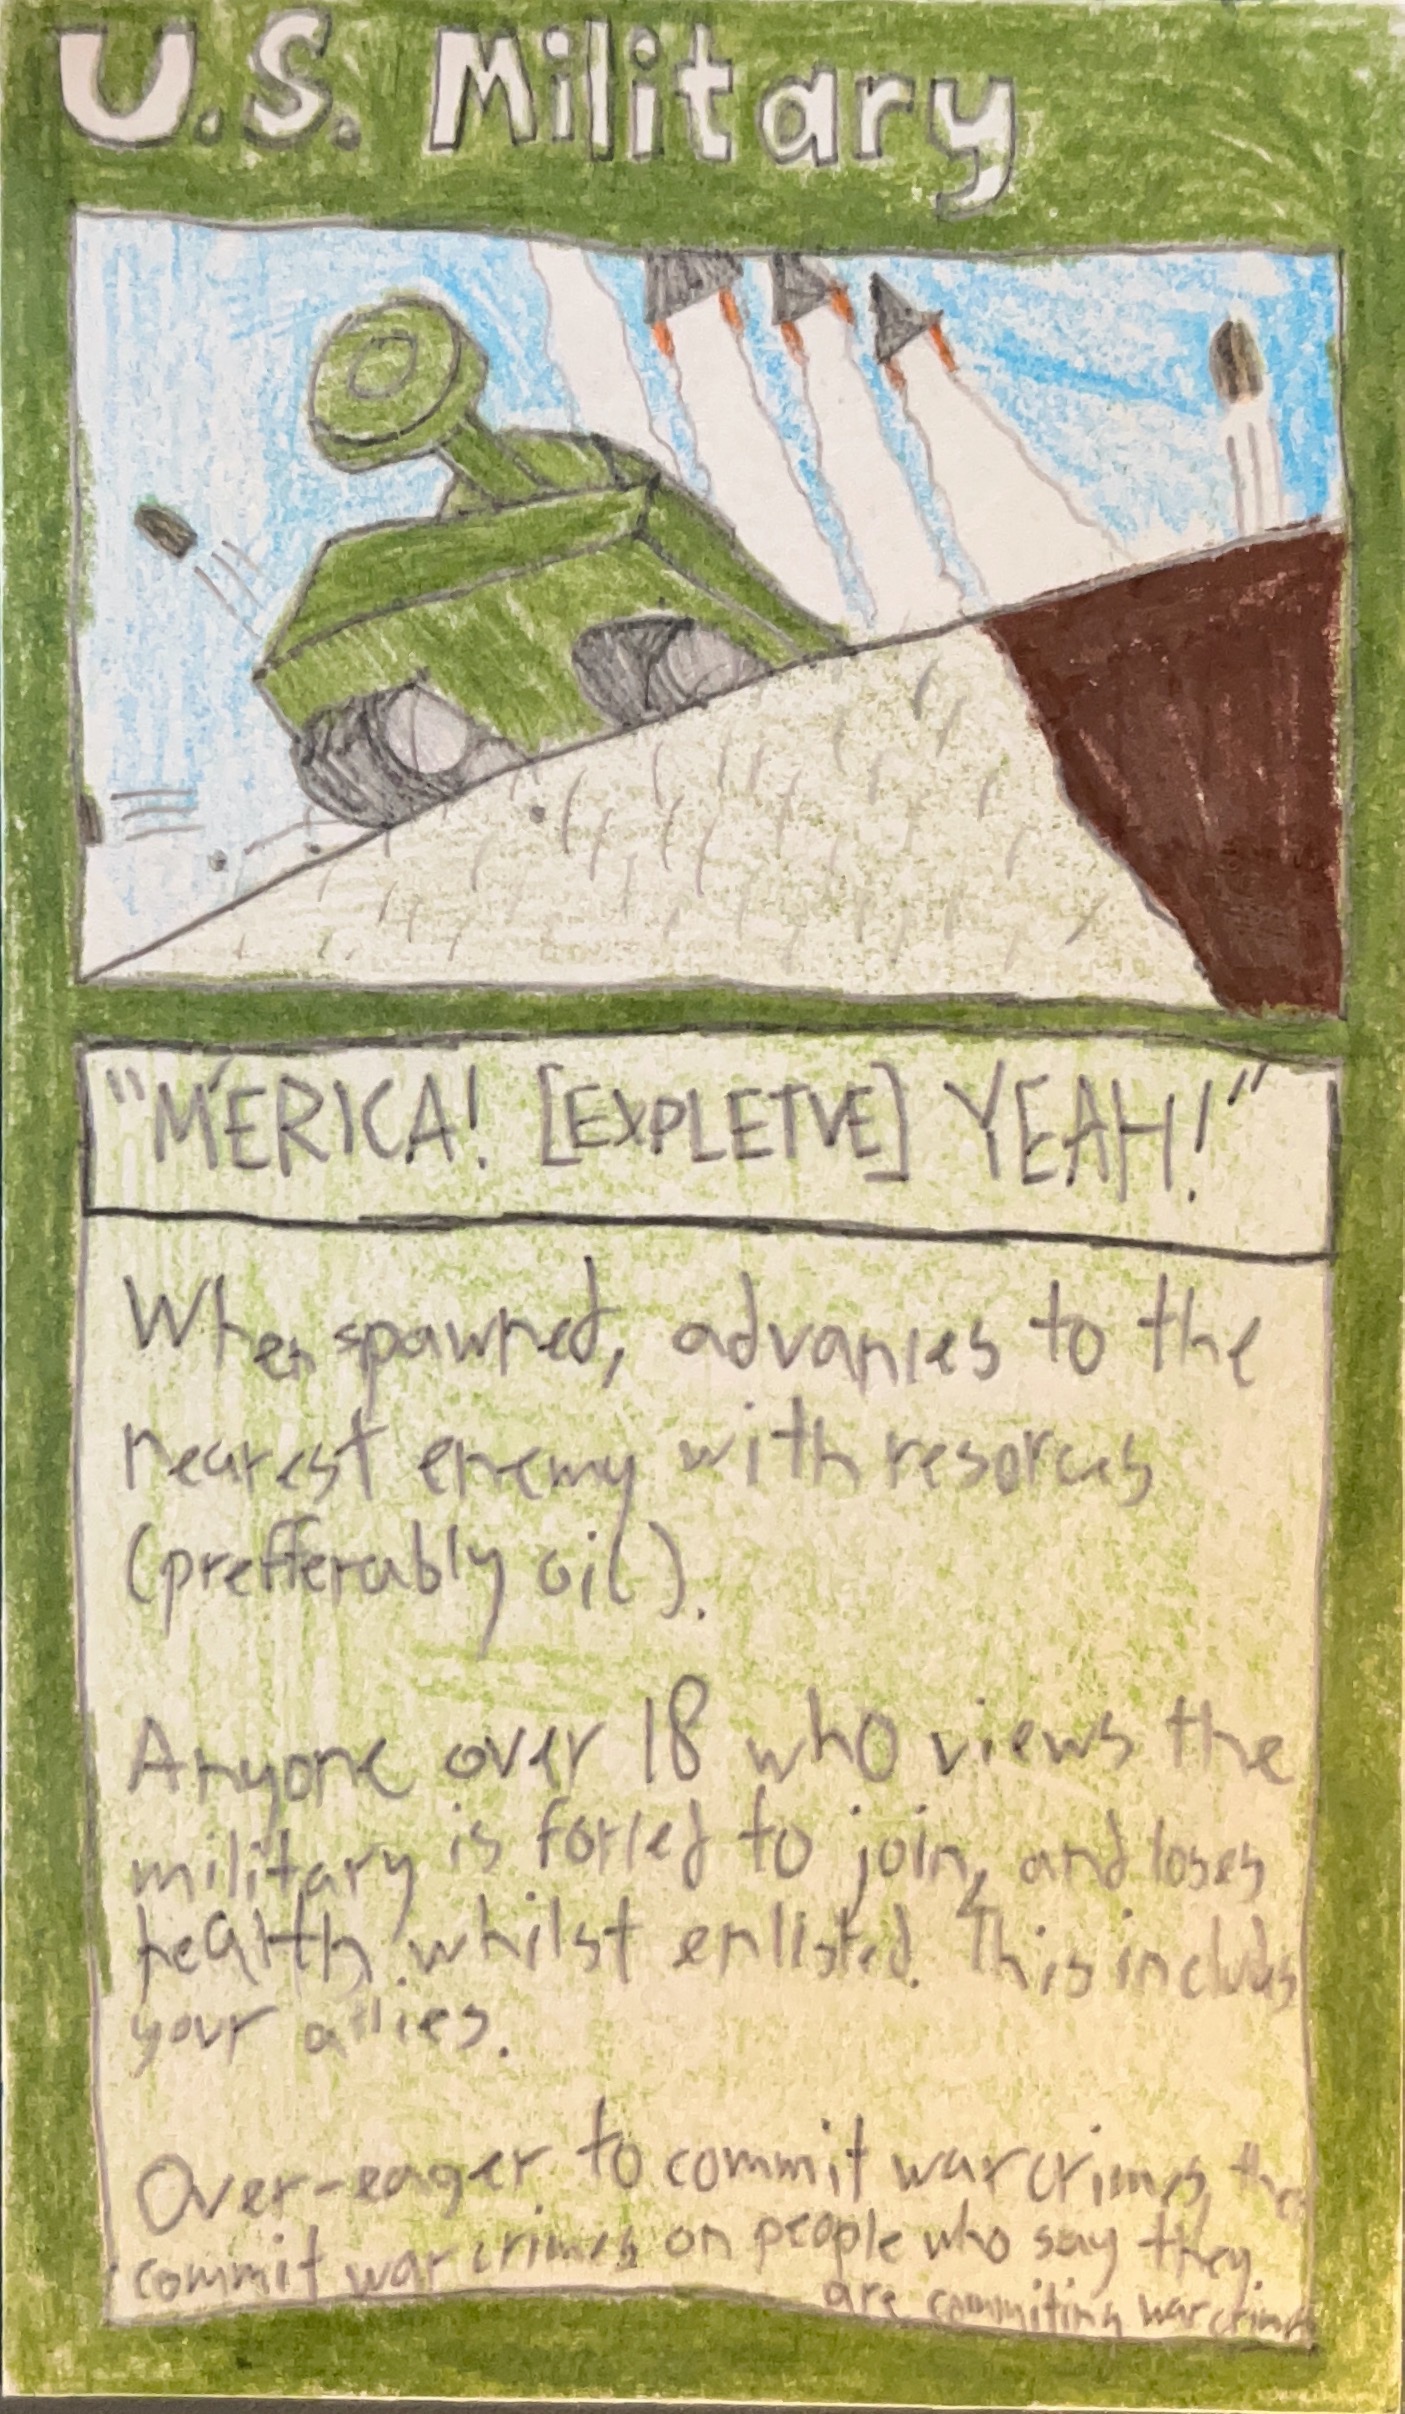 U.S. Military
"M'ERICA! [EXPLETVE] YEAH!"
When spawned, advances to the
nearest enemy with resorces
(prefferably oil).
Anyone over 18 who views the
military is forced to join, and loses
health whilst enlisted. This includes
your allies.
Over-eager to commit war crimes, they
commit war crimes on people who say they
are commiting war crimes